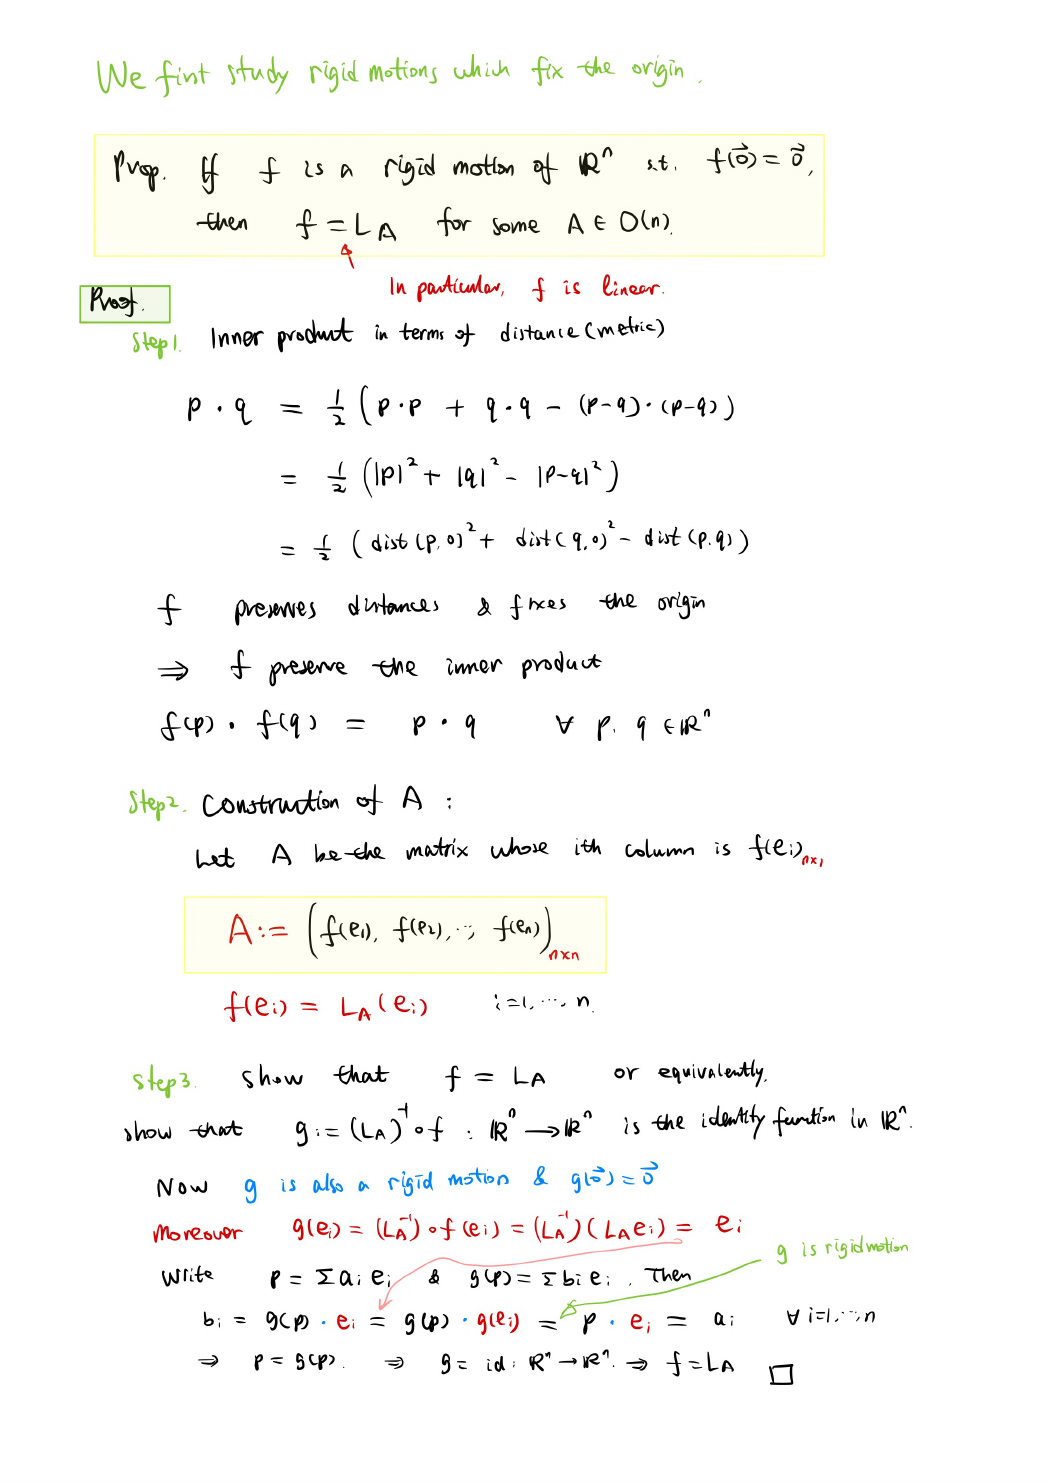 We first study rigid motions which fix the origin.
Prop. If f is a rigid motion of ℝⁿ s.t. f(0⃗) = 0⃗,
then f = L_A for some A ∈ O(n).
In particular, f is linear.
Proof.
Step1. Inner product in terms of distance (metric)
p · q = 1/2 (p·p + q·q − (p−q)·(p−q))
= 1/2 (|p|² + |q|² − |p−q|²)
= 1/2 (dist(p,0)² + dist(q,0)² − dist(p,q))
f preserves distances & fixes the origin
⇒ f preserve the inner product
f(p) · f(q) = p · q ∀ p, q ∈ ℝⁿ
Step2. Construction of A :
Let A be the matrix whose ith column is f(eᵢ)_{n×1}
A := (f(e₁), f(e₂), ..., f(eₙ))_{n×n}
f(eᵢ) = L_A(eᵢ) i=1, ..., n.
Step3. Show that f = L_A or equivalently,
show that g := (L_A)⁻¹ ∘ f : ℝⁿ → ℝⁿ is the identity function in ℝⁿ.
Now g is also a rigid motion & g(0⃗) = 0⃗
Moreover g(eᵢ) = (L_A⁻¹) ∘ f(eᵢ) = (L_A⁻¹)(L_A eᵢ) = eᵢ
g is rigid motion
Write p = Σ aᵢ eᵢ & g(p) = Σ bᵢ eᵢ. Then
bᵢ = g(p) · eᵢ = g(p) · g(eᵢ) = p · eᵢ = aᵢ ∀ i=1, ..., n
⇒ p = g(p). ⇒ g = id : ℝⁿ → ℝⁿ. ⇒ f = L_A □